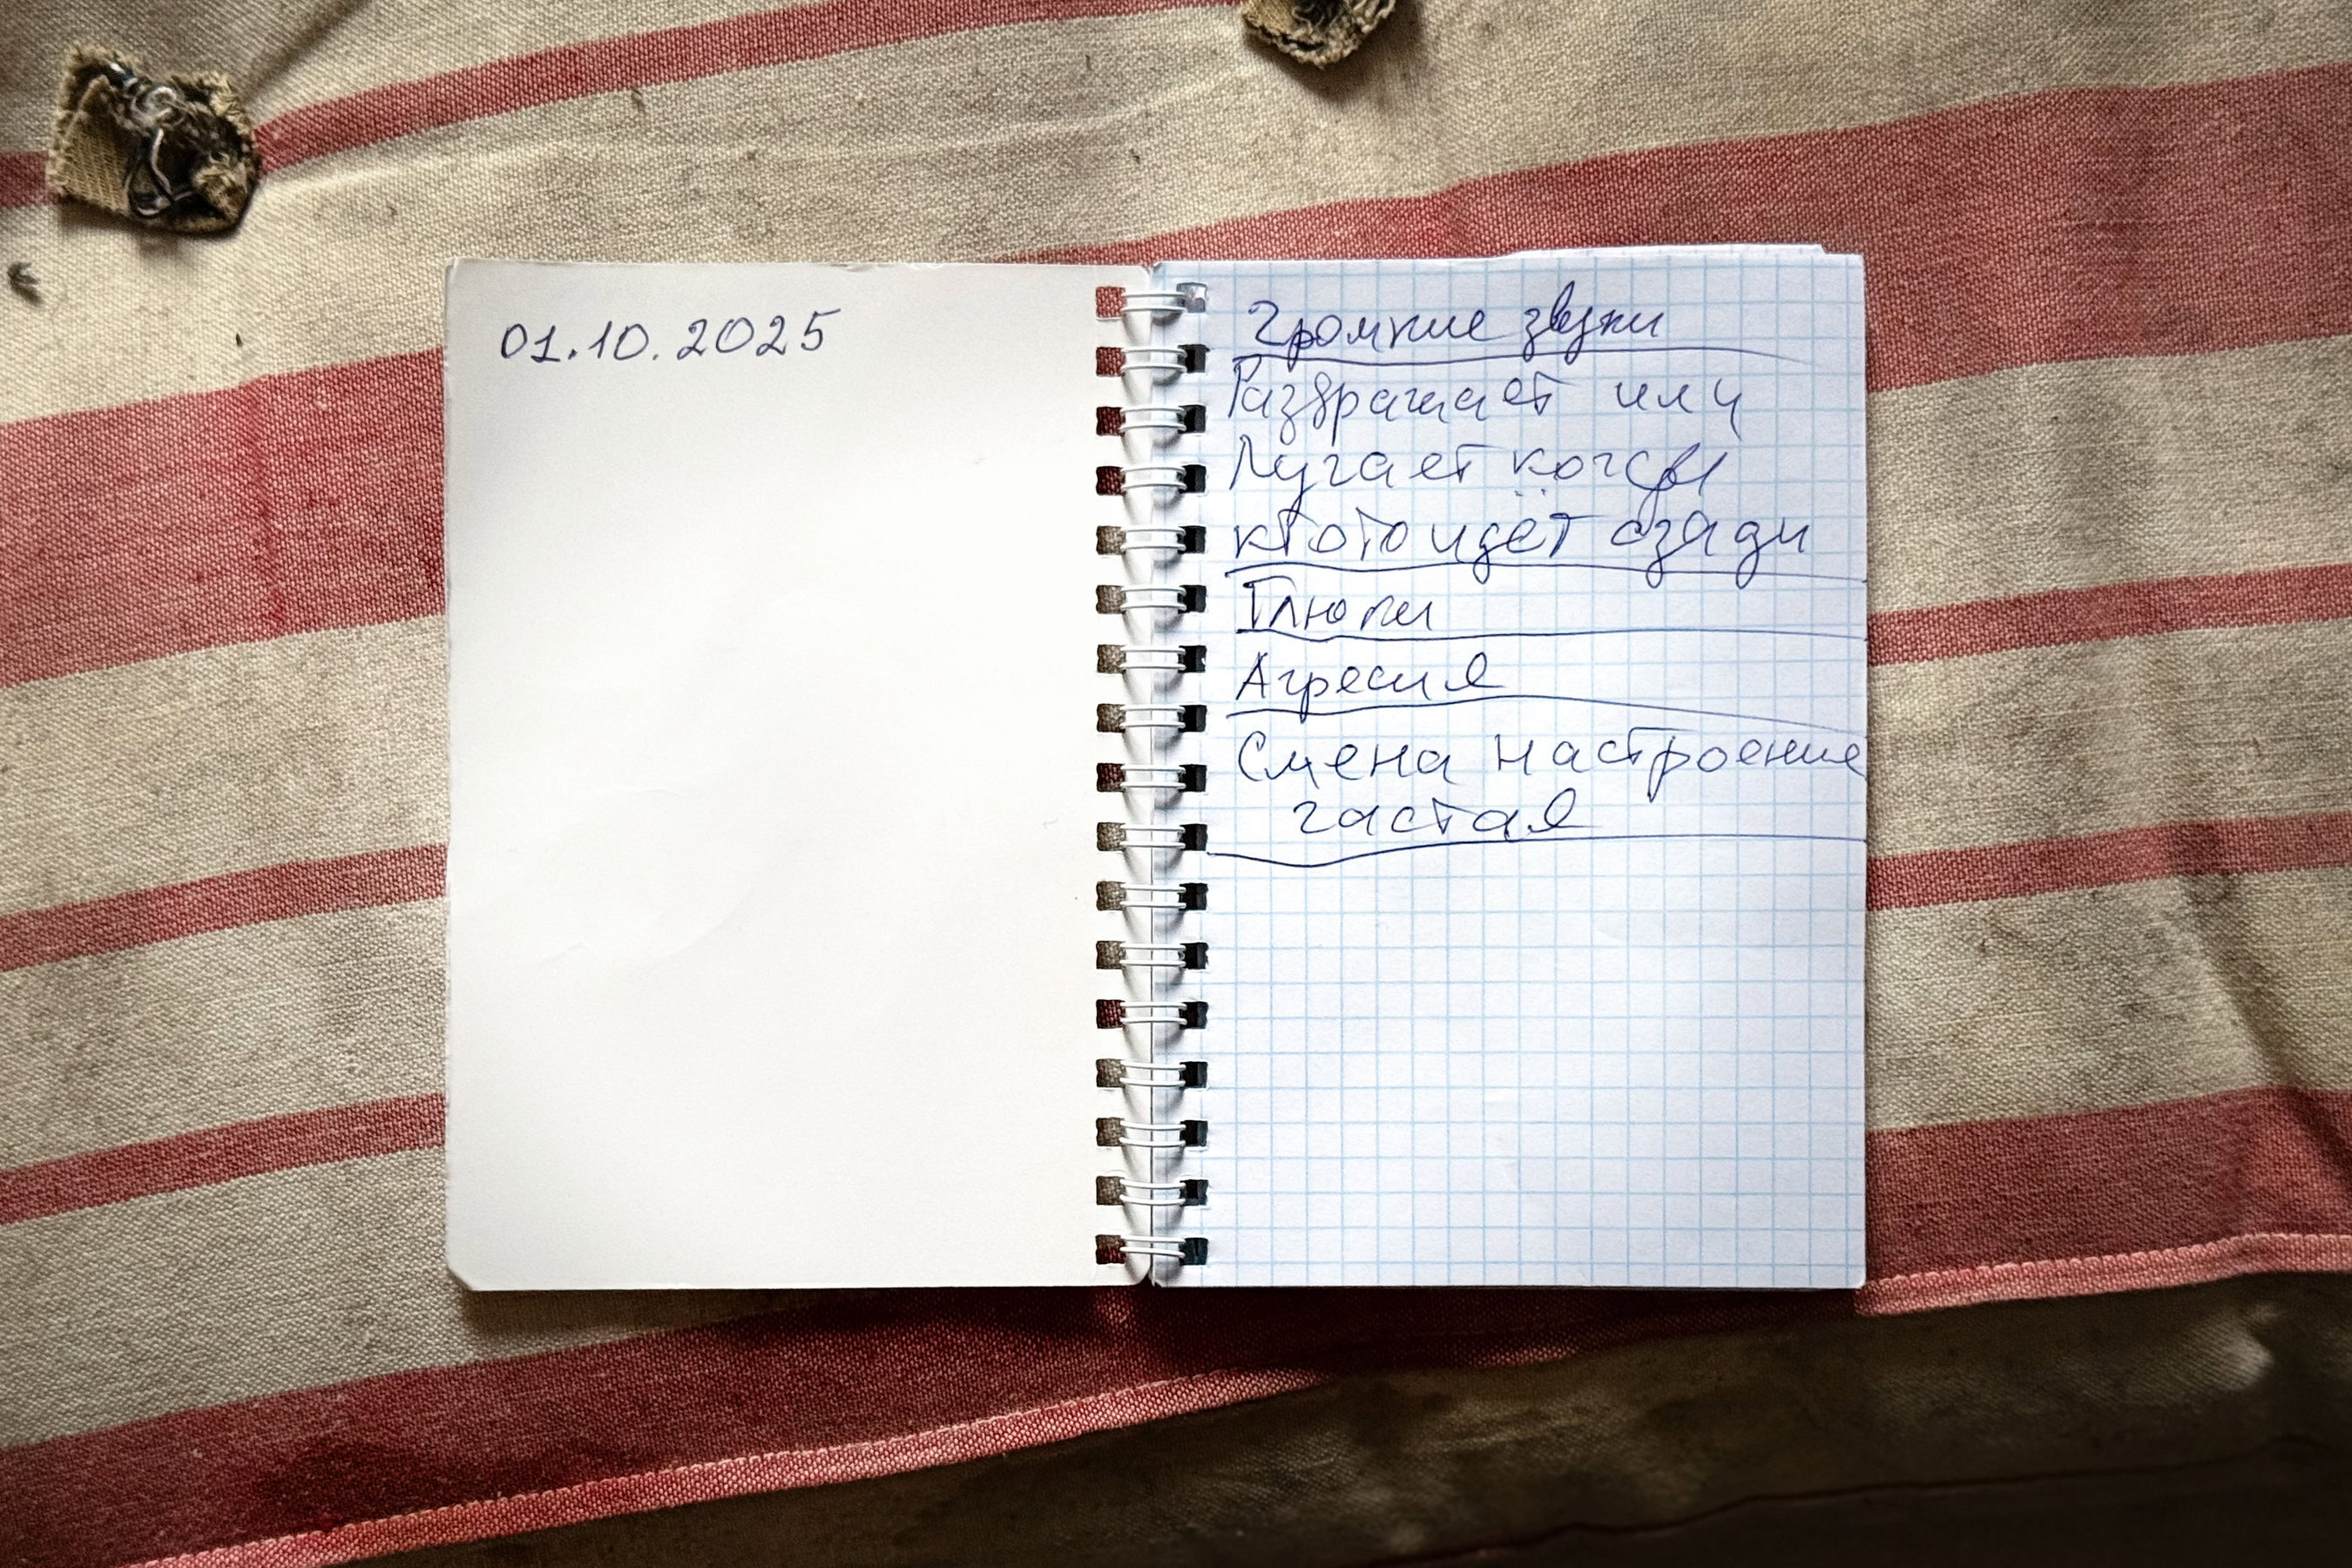 01.10.2025
Громкие звуки
Раздражает или
Пугает когда
ктото идёт сзади
Глюки
Агресия
Смена настроение
частая